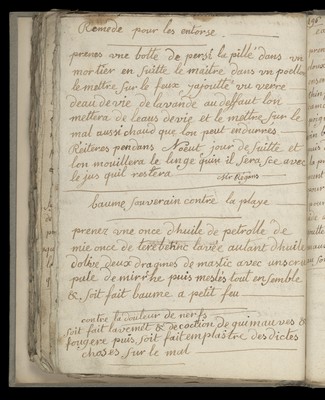 Remede pour les entorse
prenes une botte de persi la pillé dans un
mortier en suitte le maitre dans un poellon
le mettre sur le feux y ajoutté un verre
deau de vie de lavande au deffaut lon
mettera de leaus de vie et le mettre sur le
mal aussi chaud que lon peut endurrer
Reiteres pendans Noeuf jour de suitte et
lon mouillera le linge quin il sera sec avec
le jus quil restera
baume souverain contre la playe
prenez une once dhuile de petrolle de
mie once de terebentine lavée autant dhuile
dolive deux dragmes de mastic avec un scru
pule de mirrhe puis meslés tout ensemble
&, soit fait baume a petit feu
contre la douleur de nerfs
soit fait lavement & decoction de guimauves &
fougere puis, soit fait emplastre des dictes
choses, sur le mal